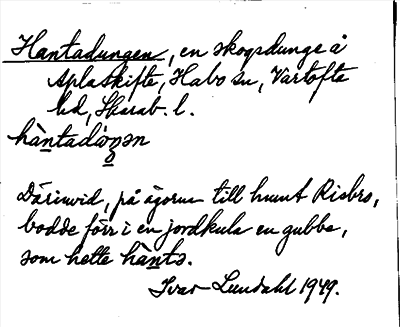 Hantadungen, en skogsdunge å
Aplaskifte, Habo sn, Vartofte
hd, Skarab. l.
hàntadàŋən
Därinvid, på ägorna till humt Risbro,
bodde förr i en jordkula en gubbe,
som hette hànta.
Ivar Lundahl 1949.